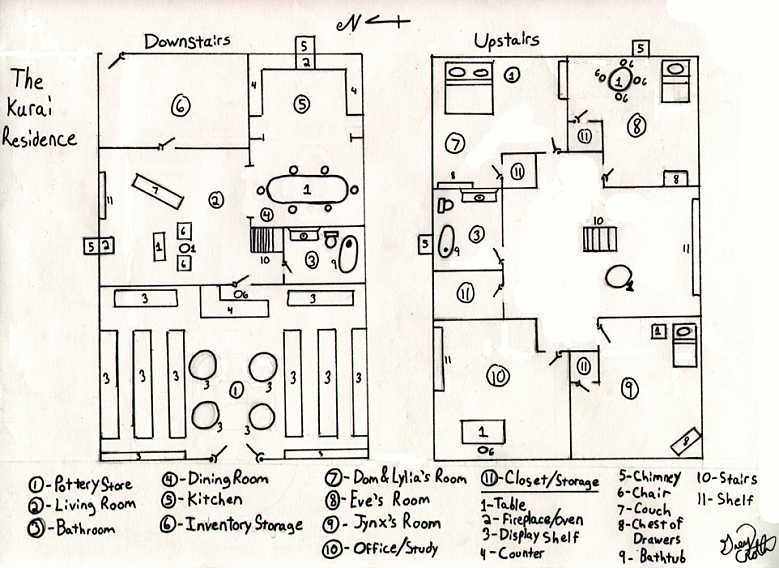 N
Downstairs
Upstairs
The
Kurai
Residence
5
2
4
5
4
6
7
2
11
6
1
1
6
5
2
1
4
10
3
9
3
6
4
3
3
3
3
3
3
3
3
3
1
3
3
3
3
3
5
1
6
6
1
6
6
11
8
7
11
8
8
3
5
9
10
11
1
11
11
11
1
10
9
8
1
6
①-Pottery Store
②-Living Room
③-Bathroom
④-Dining Room
⑤-Kitchen
⑥-Inventory Storage
⑦-Dom & Lylia's Room
⑧-Eve's Room
⑨-Jynx's Room
⑩-Office/Study
⑪-Closet/Storage
1-Table
2-Fireplace/oven
3-Display Shelf
4-Counter
5-Chimney
6-Chair
7-Couch
8-Chest of
Drawers
9-Bathtub
10-Stairs
11-Shelf